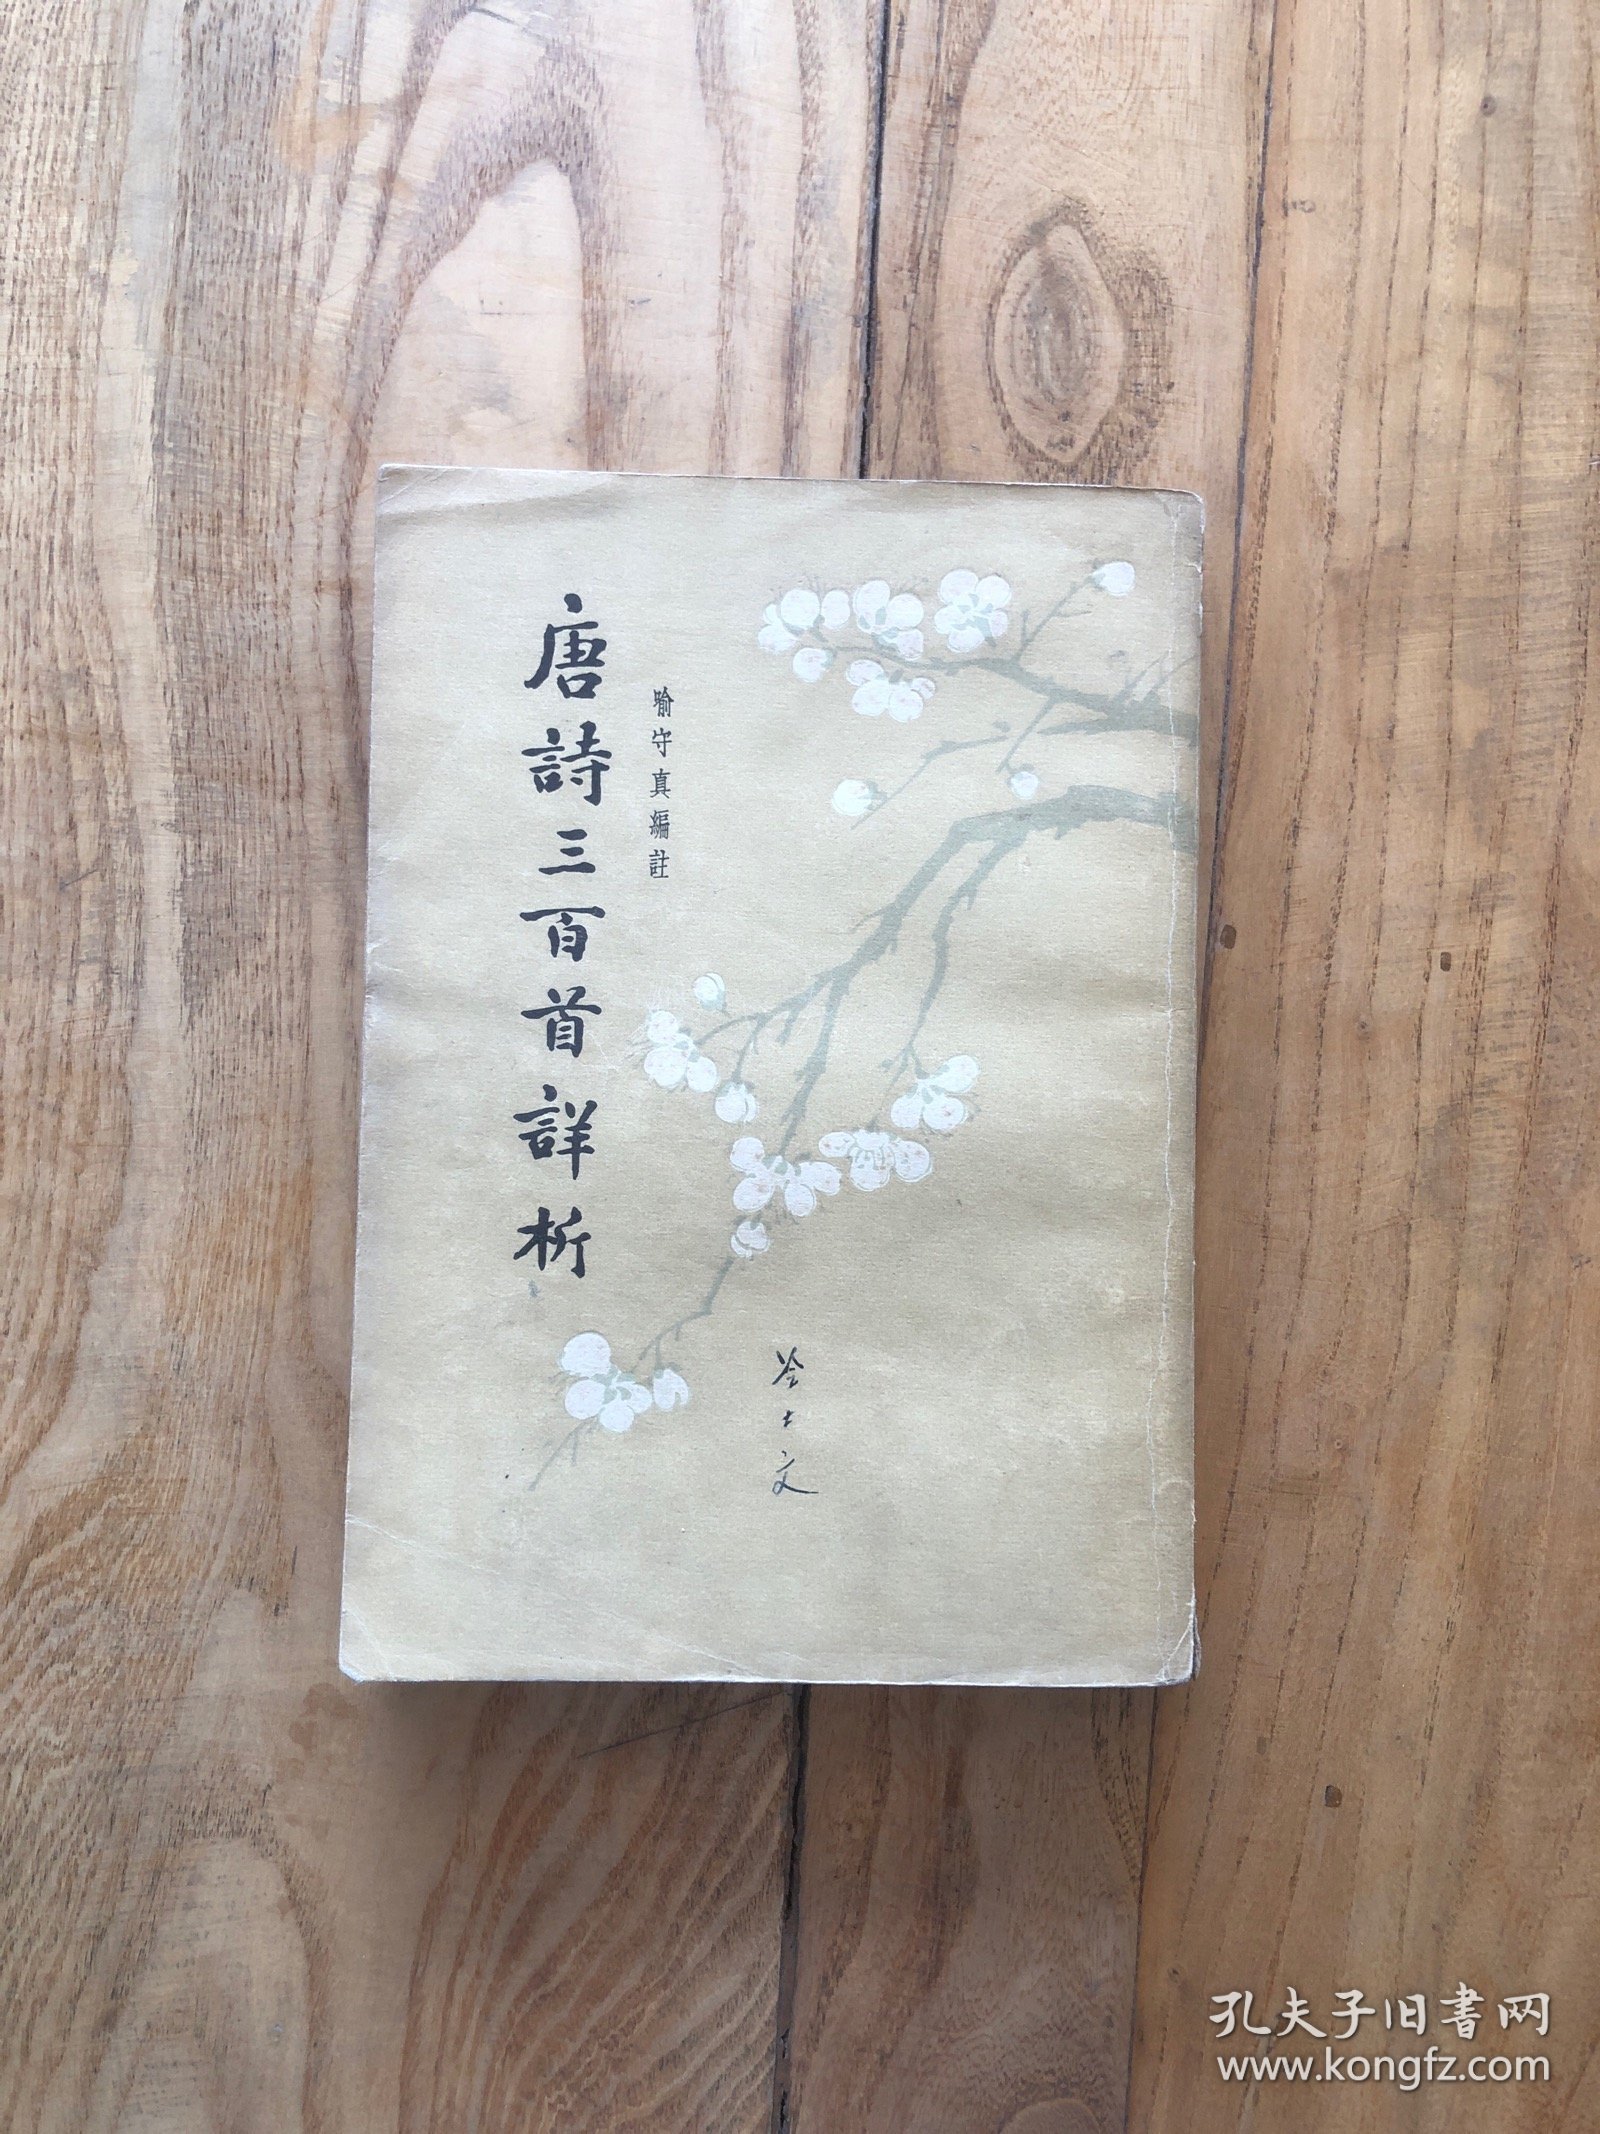 唐詩三百首詳析
喻守真編註
孔夫子旧書网
www.kongfz.com